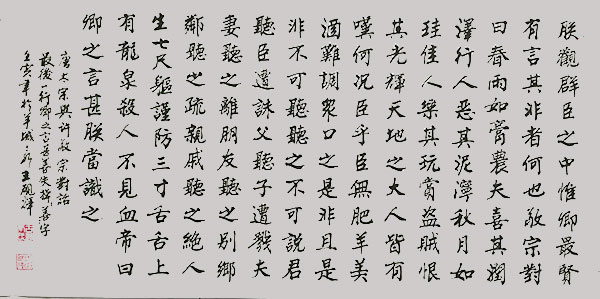 朕觀群臣之中惟卿最賢
有言其非者何也敬宗對
曰春雨如膏農夫喜其潤
澤行人惡其泥濘秋月如
珪佳人樂其玩賞盜賊恨
其光輝天地之大人皆有
嘆何況臣乎臣無肥羊美
酒難調衆口之是非且是
非不可聽聽之不可説君
聽臣遭誅父聽子遭戮夫
妻聽之離朋友聽之别鄉
鄰聽之疏親戚聽之絶人
生七尺軀謹防三寸舌舌上
有龍泉殺人不見血帝曰
卿之言甚朕當識之
唐太宗與許敬宗對話
最後一行卿之言甚善失掉善字
壬寅年於羊城